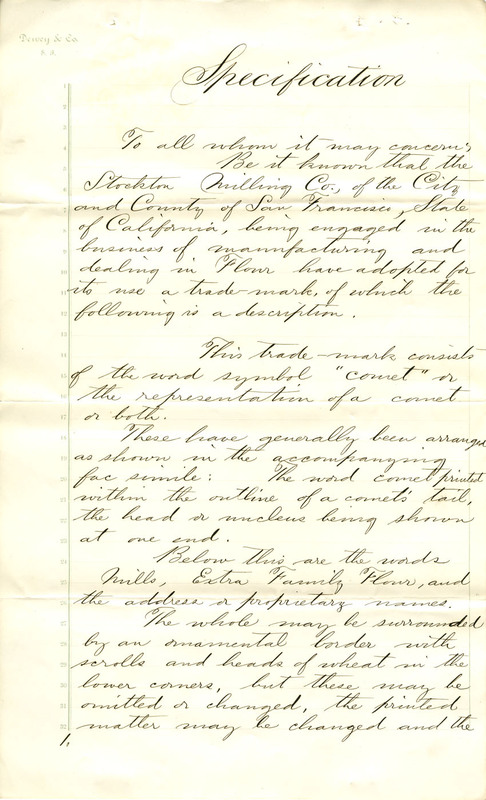 Dewey & Co.
S. F.
Specification
To all whom it may concern:
Be it known that the
Stockton Milling Co., of the City
and County of San Francisco, State
of California, being engaged in the
business of manufacturing and
dealing in Flour have adopted for
its use a trade-mark, of which the
following is a description.
This trade-mark consists
of the word symbol "comet" or
the representation of a comet
or both.
These have generally been arranged
as shown in the accompanying
fac simile: The word comet printed
within the outline of a comet's tail,
the head or nucleus being shown
at one end.
Below this are the words
Mills, Extra Family Flour, and
the address or proprietary names.
The whole may be surrounded
by an ornamental border with
scrolls and heads of wheat in the
lower corners, but these may be
omitted or changed, the printed
matter may be changed and the
1.